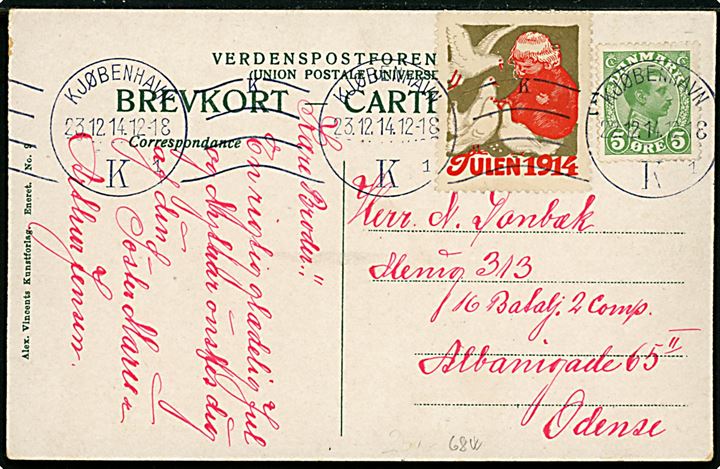 VERDENSPOSTFOREN
(UNION POSTALE UNIVERSE
BREVKORT — CARTE
Correspondance
KJØBENHAVN
23.12.14.12-18
K
1
K
KJØBENHAVN
23.12.14.12-18
K
1
K
JULEN 1914
DANMARK
5 ØRE 5
KJØBENHAVN
12.14 8
K
1
Kære Broder!,
En rigtig glædelig Jul
og Nytaar ønskes dig
af din Søster Marie &
Arthur Jensen.
Alex. Vincents Kunstforlag. Eneret. No. 9
Herr. N. Tonbæk
Menig 313
16 Batalj. 2 Comp.
Albanigade 65 II
Odense